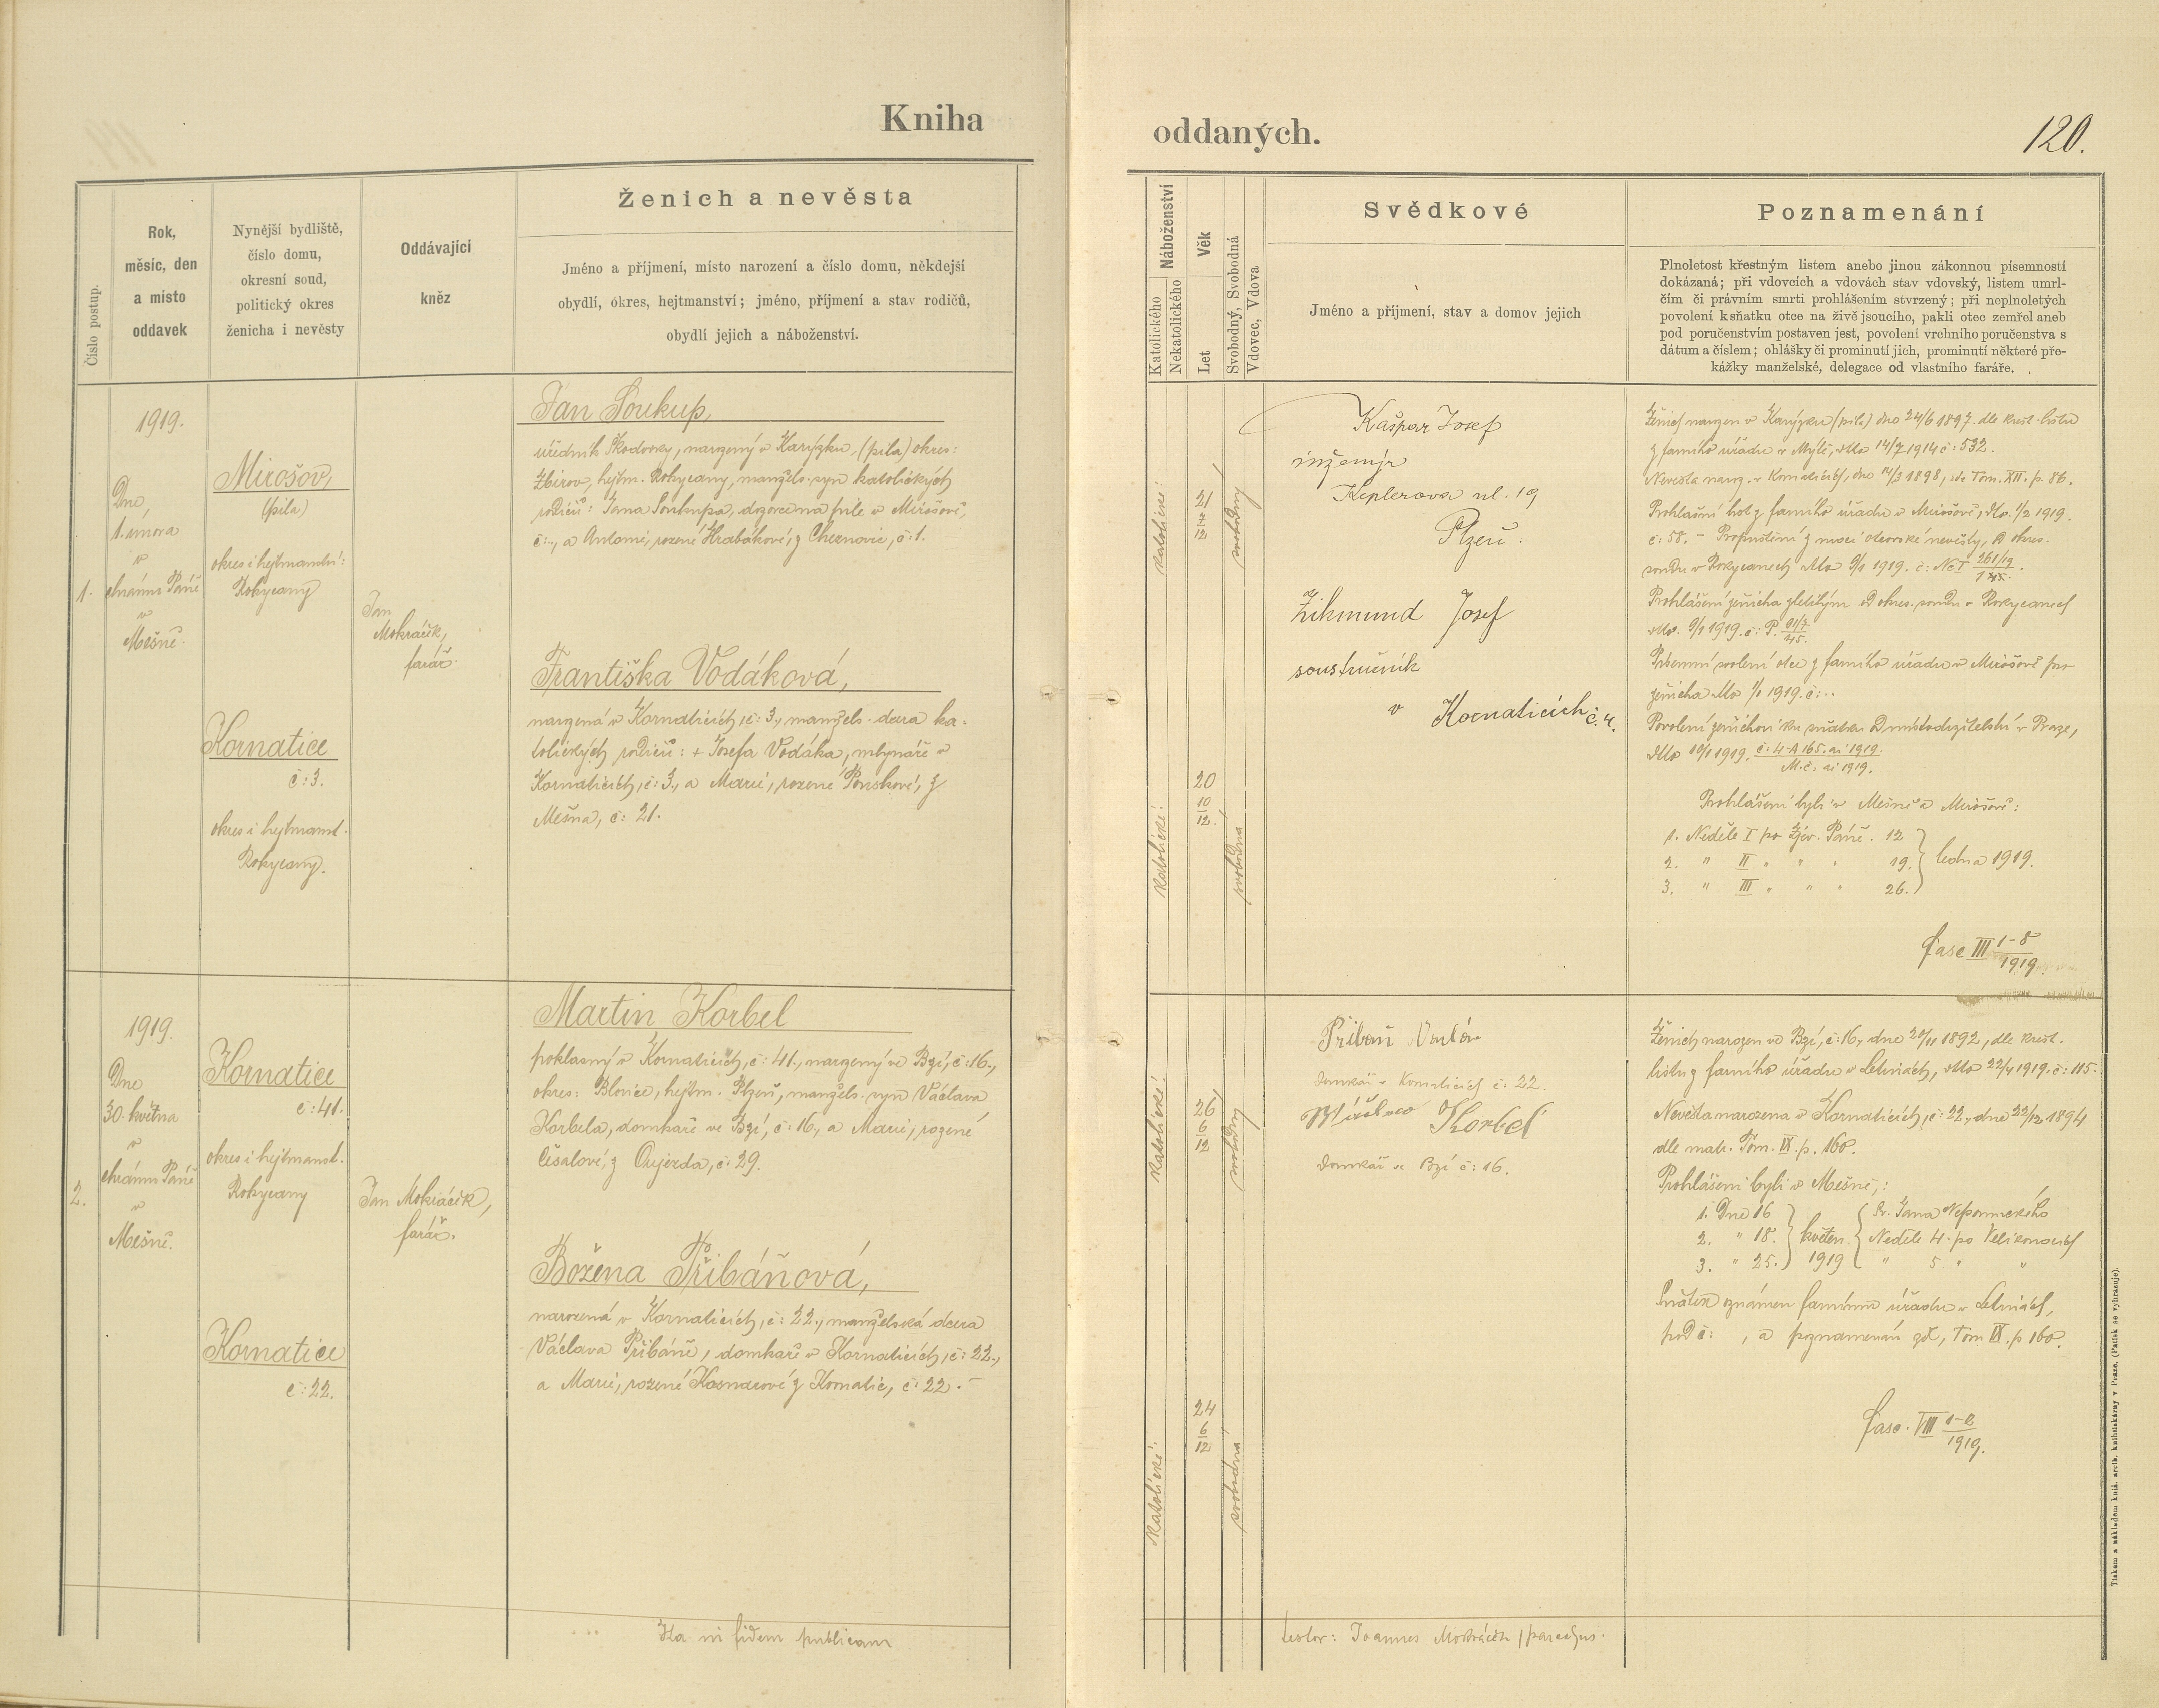 Kniha
oddaných.
120.
Číslo postup.
Rok,
měsíc, den
a místo
oddavek
Nynější bydliště,
číslo domu,
okresní soud,
politický okres
ženicha i nevěsty
Oddávající
kněz
Ženich a nevěsta
Jméno a příjmení, místo narození a číslo domu, někdejší
obydlí, okres, hejtmanství; jméno, příjmení a stav rodičů,
obydlí jejich a náboženství.
Náboženství
Katolického
Nekatolického
Věk
Let
Svobodný, Svobodná
Vdovec, Vdova
Svědkové
Jméno a příjmení, stav a domov jejich
Poznamenání
Plnoletost křestným listem anebo jinou zákonnou písemností
dokázaná; při vdovcích a vdovách stav vdovský, listem umrl-
čím či právním smrti prohlášením stvrzený; při neplnoletých
povolení k sňatku otce na živě jsoucího, pakli otec zemřel aneb
pod poručenstvím postaven jest, povolení vrchního poručenstva s
dátum a číslem; ohlášky či prominutí jich, prominutí některé pře-
kážky manželské, delegace od vlastního faráře.
1.
1919.
Dne
1. února
v
chrámu Páně
v
Mešně.
Mirošov,
(pila)
okres i hejtmanství:
Rokycany
Kornatice
č: 3.
okres i hejtmanst.
Rokycany.
Jan
Mokráček,
farář.
Jan Soukup,
úředník Škodovky, narozený v Karýzku, (pila) okres:
Zbirov, hejtm. Rokycany, manžels. syn katolických
rodičů: Jana Soukupa, dozorce na pile v Mirošově,
č:.., a Antonie, rozené Hrabákové, z Cheznovic, č: 1.
Františka Vodáková,
narozená v Kornaticích, č: 3., manžels. dcera ka-
tolických rodičů: + Josefa Vodáka, mlynáře v
Kornaticích, č: 3., a Marie, rozené Ponskové, z
Mešna, č: 21.
katolické!
21
7
12
svobodný
katolické!
20
10
12.
svobodna
Kašpar Josef
inženýr
Keplerova ul. 19
Plzeň.
Zikmund Josef
soustružník
v Kornaticích č. 4.
Ženich narozen v Karýzku (pila) dne 24/6 1897. dle křest. listu
z farního úřadu v Mýtě, ddto 14/7 1914 č: 532.
Nevěsta naroz. v Kornaticích, dne 14/3 1898, vde Tom. XII. p. 86.
Prohlašní list z farního úřadu v Mirošově, ddto. 1/2 1919.
č: 58. – Propuštění z moci otcovské nevěsty, od okres.
soudu v Rokycanech ddto 9/1 1919. č: Nc I 261/19
Prohlášení ženicha zletilým od okres. soudu v Rokycanech
ddto. 9/1 1919. č: P. 91/7
45.
Písemní svolení otce z farního úřadu v Mirošově pro
ženicha ddto 1/1 1919. č:..
Povolení ženichovi ku sňatku od místodržitelství v Praze,
ddto 10/1 1919. č: 4-A 165. ai 1919.
M.č: ai 1919.
Prohlášení byli v Mešně a Mirošově:
1. Neděle I po Zjev. Páně. 12
2. " II " " " 19. } ledna 1919.
3. " III " " " 26.
fasc III 1-8
1919.
2.
1919.
Dne
30. května
v
chrámu Páně
v
Mešně.
Kornatice
č: 41.
okres i hejtmanst.
Rokycany
Kornatice
č: 22.
Jan Mokráček,
farář.
Martin Korbel
poklasný v Kornaticích, č: 41., narozený ve Bzí, č: 16.,
okres: Blovice, hejtm. Plzeň, manžels. syn Václava
Korbela, domkaře ve Bzí, č: 16., a Marie, rozené
Čišalové, z Oujezda, č: 29.
Božena Přibáňová,
narozená v Kornaticích, č: 22., manželská dcera
Václava Přibáně, domkaře v Kornaticích, č: 22.,
a Marie, rozené Kosnarové z Kornatic, č: 22. –
katolické!
26
6
12
svobodný
katolické!
24
6
12
svobodná
Přibáň
domkář v Kornaticích č: 22.
Korbel
domkář ve Bzí č: 16.
Ženich narozen ve Bzí, č: 16., dne 20/11 1892, dle křest.
listu z farního úřadu v Letinách, ddto 22/4 1919. č: 115.
Nevěsta narozena v Kornaticích, č: 22., dne 22/12 1894
dle matr. Tom. IX. p. 160.
Prohlášeni byli v Mešně,:
1. Dne 16 } { Sv. Jana Nepomuckého
2. " 18. } květen { Neděle 4. po Velikonocích
3. " 25. } 1919 { " 5 " "
Sňatek oznámen farnímu úřadu v Letinách,
pod č: , a poznamenán zde, Tom IX. p 160.
fasc. VIII 1-2
1919.
Ita in fidem publicam
testor: Joannes Mokráček, parochus.
Tiskem a nákladem kníž. arcib. knihtiskárny v Praze. (Patisk se vyhrazuje).